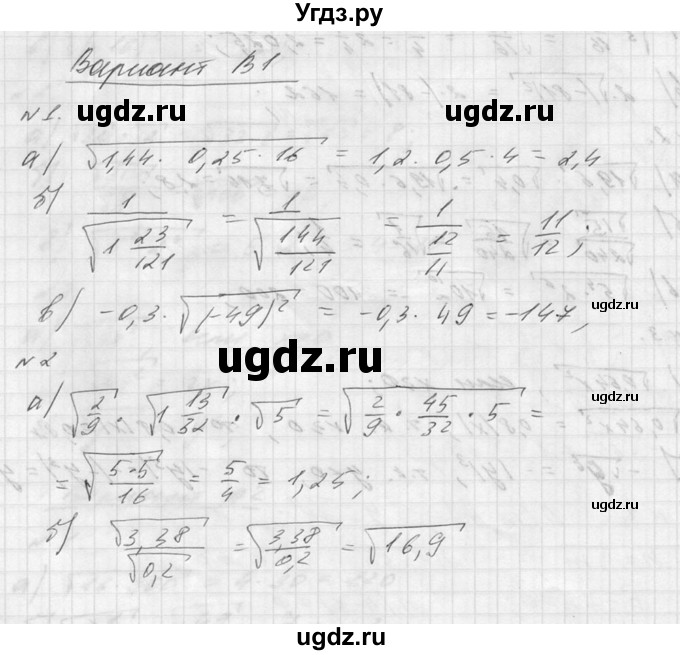 Угдз.ру
Вариант В1
ugdz.ru ugdz.ru
№1.
а) √(1,44 · 0,25 · 16) = 1,2 · 0,5 · 4 = 2,4
б) 1/√(1 23/121) = 1/√(144/121) = 1/(12/11) = 11/12;
в) -0,3 · √((-49)²) = -0,3 · 49 = -147,
ugdz.ru
ugdz.ru
№2
а) √(2/9) · √(1 13/32) · √5 = √(2/9 · 45/32 · 5) =
= √(5·5/16) = 5/4 = 1,25;
ugdz.ru
б) √3,38/√0,2 = √(3,38/0,2) = √16,9
ugdz.ru
ugdz.ru